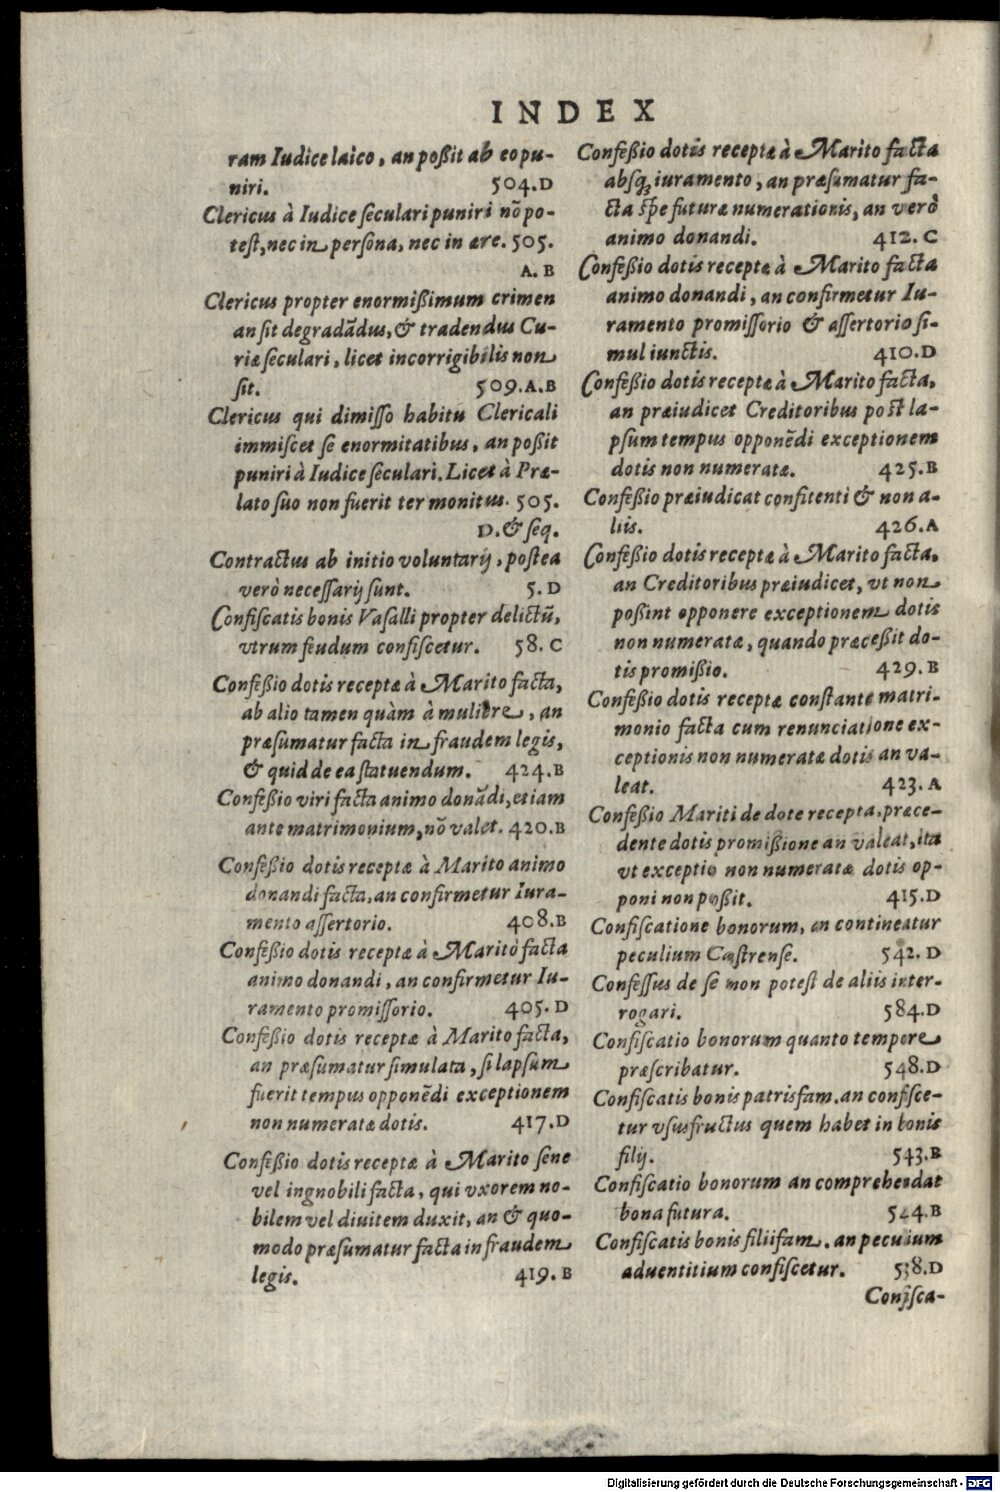 INDEX
ram Iudice laico, an poßit ab eo pu-
niri. 504.D
Clericus à Iudice seculari puniri nõ po-
test, nec in persona, nec in ære. 505.
A.B
Clericus propter enormißimum crimen
an sit degradãdus, & tradendus Cu-
riæ seculari, licet incorrigibilis non
sit. 509.A.B
Clericus qui dimisso habitu Clericali
immiscet se enormitatibus, an poßit
puniri à Iudice seculari. Licet à Præ-
lato suo non fuerit ter monitus. 505.
D. & seq.
Contractus ab initio voluntarij, postea
verò necessarij sunt. 5.D
Confiscatis bonis Vasalli propter delictũ,
vtrum feudum confiscetur. 58.C
Confeßio dotis receptæ à Marito facta,
ab alio tamen quàm à muliere, an
præsumatur facta in fraudem legis,
& quid de ea statuendum. 424.B
Confeßio viri facta animo donãdi, etiam
ante matrimonium, nõ valet. 420.B
Confeßio dotis receptæ à Marito animo
donandi facta, an confirmetur Iura-
mento assertorio. 408.B
Confeßio dotis receptæ à Marito facta
animo donandi, an confirmetur Iu-
ramento promissorio. 405.D
Confeßio dotis receptæ à Marito facta,
an præsumatur simulata, si lapsum
fuerit tempus opponẽdi exceptionem
non numeratæ dotis. 417.D
Confeßio dotis receptæ à Marito sene
vel ingnobili facta, qui vxorem no-
bilem vel diuitem duxit, an & quo-
modo præsumatur facta in fraudem
legis. 419.B
Confeßio dotis receptæ à Marito facta
absq; iuramento, an præsumatur fa-
cta spe futuræ numerationis, an verò
animo donandi. 412.C
Confeßio dotis receptæ à Marito facta
animo donandi, an confirmetur Iu-
ramento promissorio & assertorio si-
mul iunctis. 410.D
Confeßio dotis receptæ à Marito facta,
an præiudicet Creditoribus post la-
psum tempus opponẽdi exceptionem
dotis non numeratæ. 425.B
Confeßio præiudicat confitenti & non a-
liis. 426.A
Confeßio dotis receptæ à Marito facta,
an Creditoribus præiudicet, vt non
poßint opponere exceptionem dotis
non numeratæ, quando præceßit do-
tis promißio. 429.B
Confeßio dotis receptæ constante matri-
monio facta cum renunciatione ex-
ceptionis non numeratæ dotis an va-
leat. 423.A
Confeßio Mariti de dote recepta, præce-
dente dotis promißione an valeat, ita
vt exceptio non numeratæ dotis op-
poni non poßit. 415.D
Confiscatione bonorum, an contineatur
peculium Castrense. 542.D
Confessus de se non potest de aliis inter-
rogari. 584.D
Confiscatio bonorum quanto tempore
præscribatur. 548.D
Confiscatis bonis patrisfam. an confisce-
tur vsusfructus quem habet in bonis
filij. 543.B
Confiscatio bonorum an comprehendat
bona futura. 544.B
Confiscatis bonis filiifam. an peculium
aduentitium confiscetur. 538.D
Confisca-
Digitalisierung gefördert durch die Deutsche Forschungsgemeinschaft - DFG